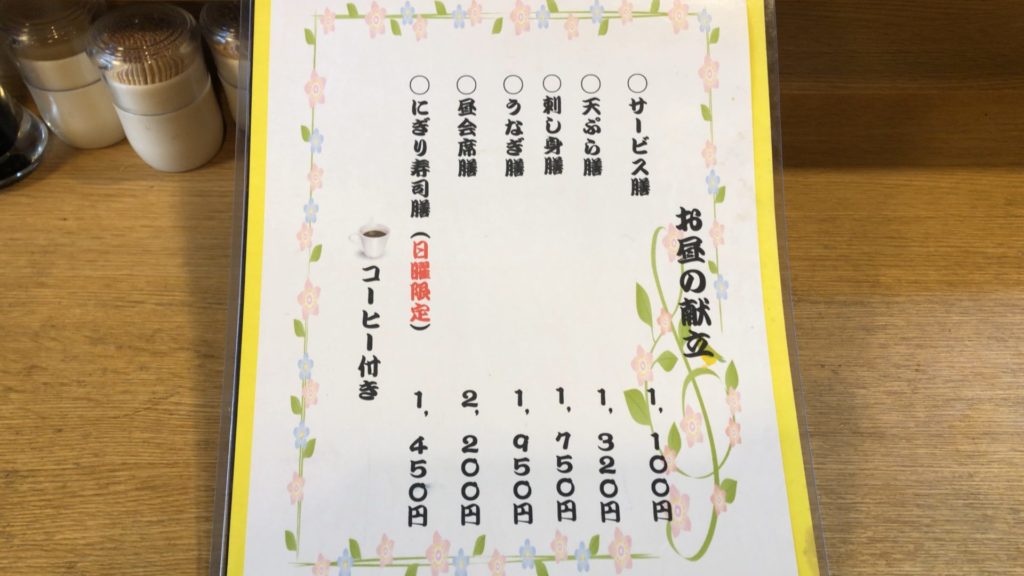 お昼の献立
○サービス膳 1,100円
○天ぷら膳 1,320円
○刺し身膳 1,750円
○うなぎ膳 1,950円
○昼会席膳 2,200円
○にぎり寿司膳(日曜限定) 1,450円
コーヒー付き